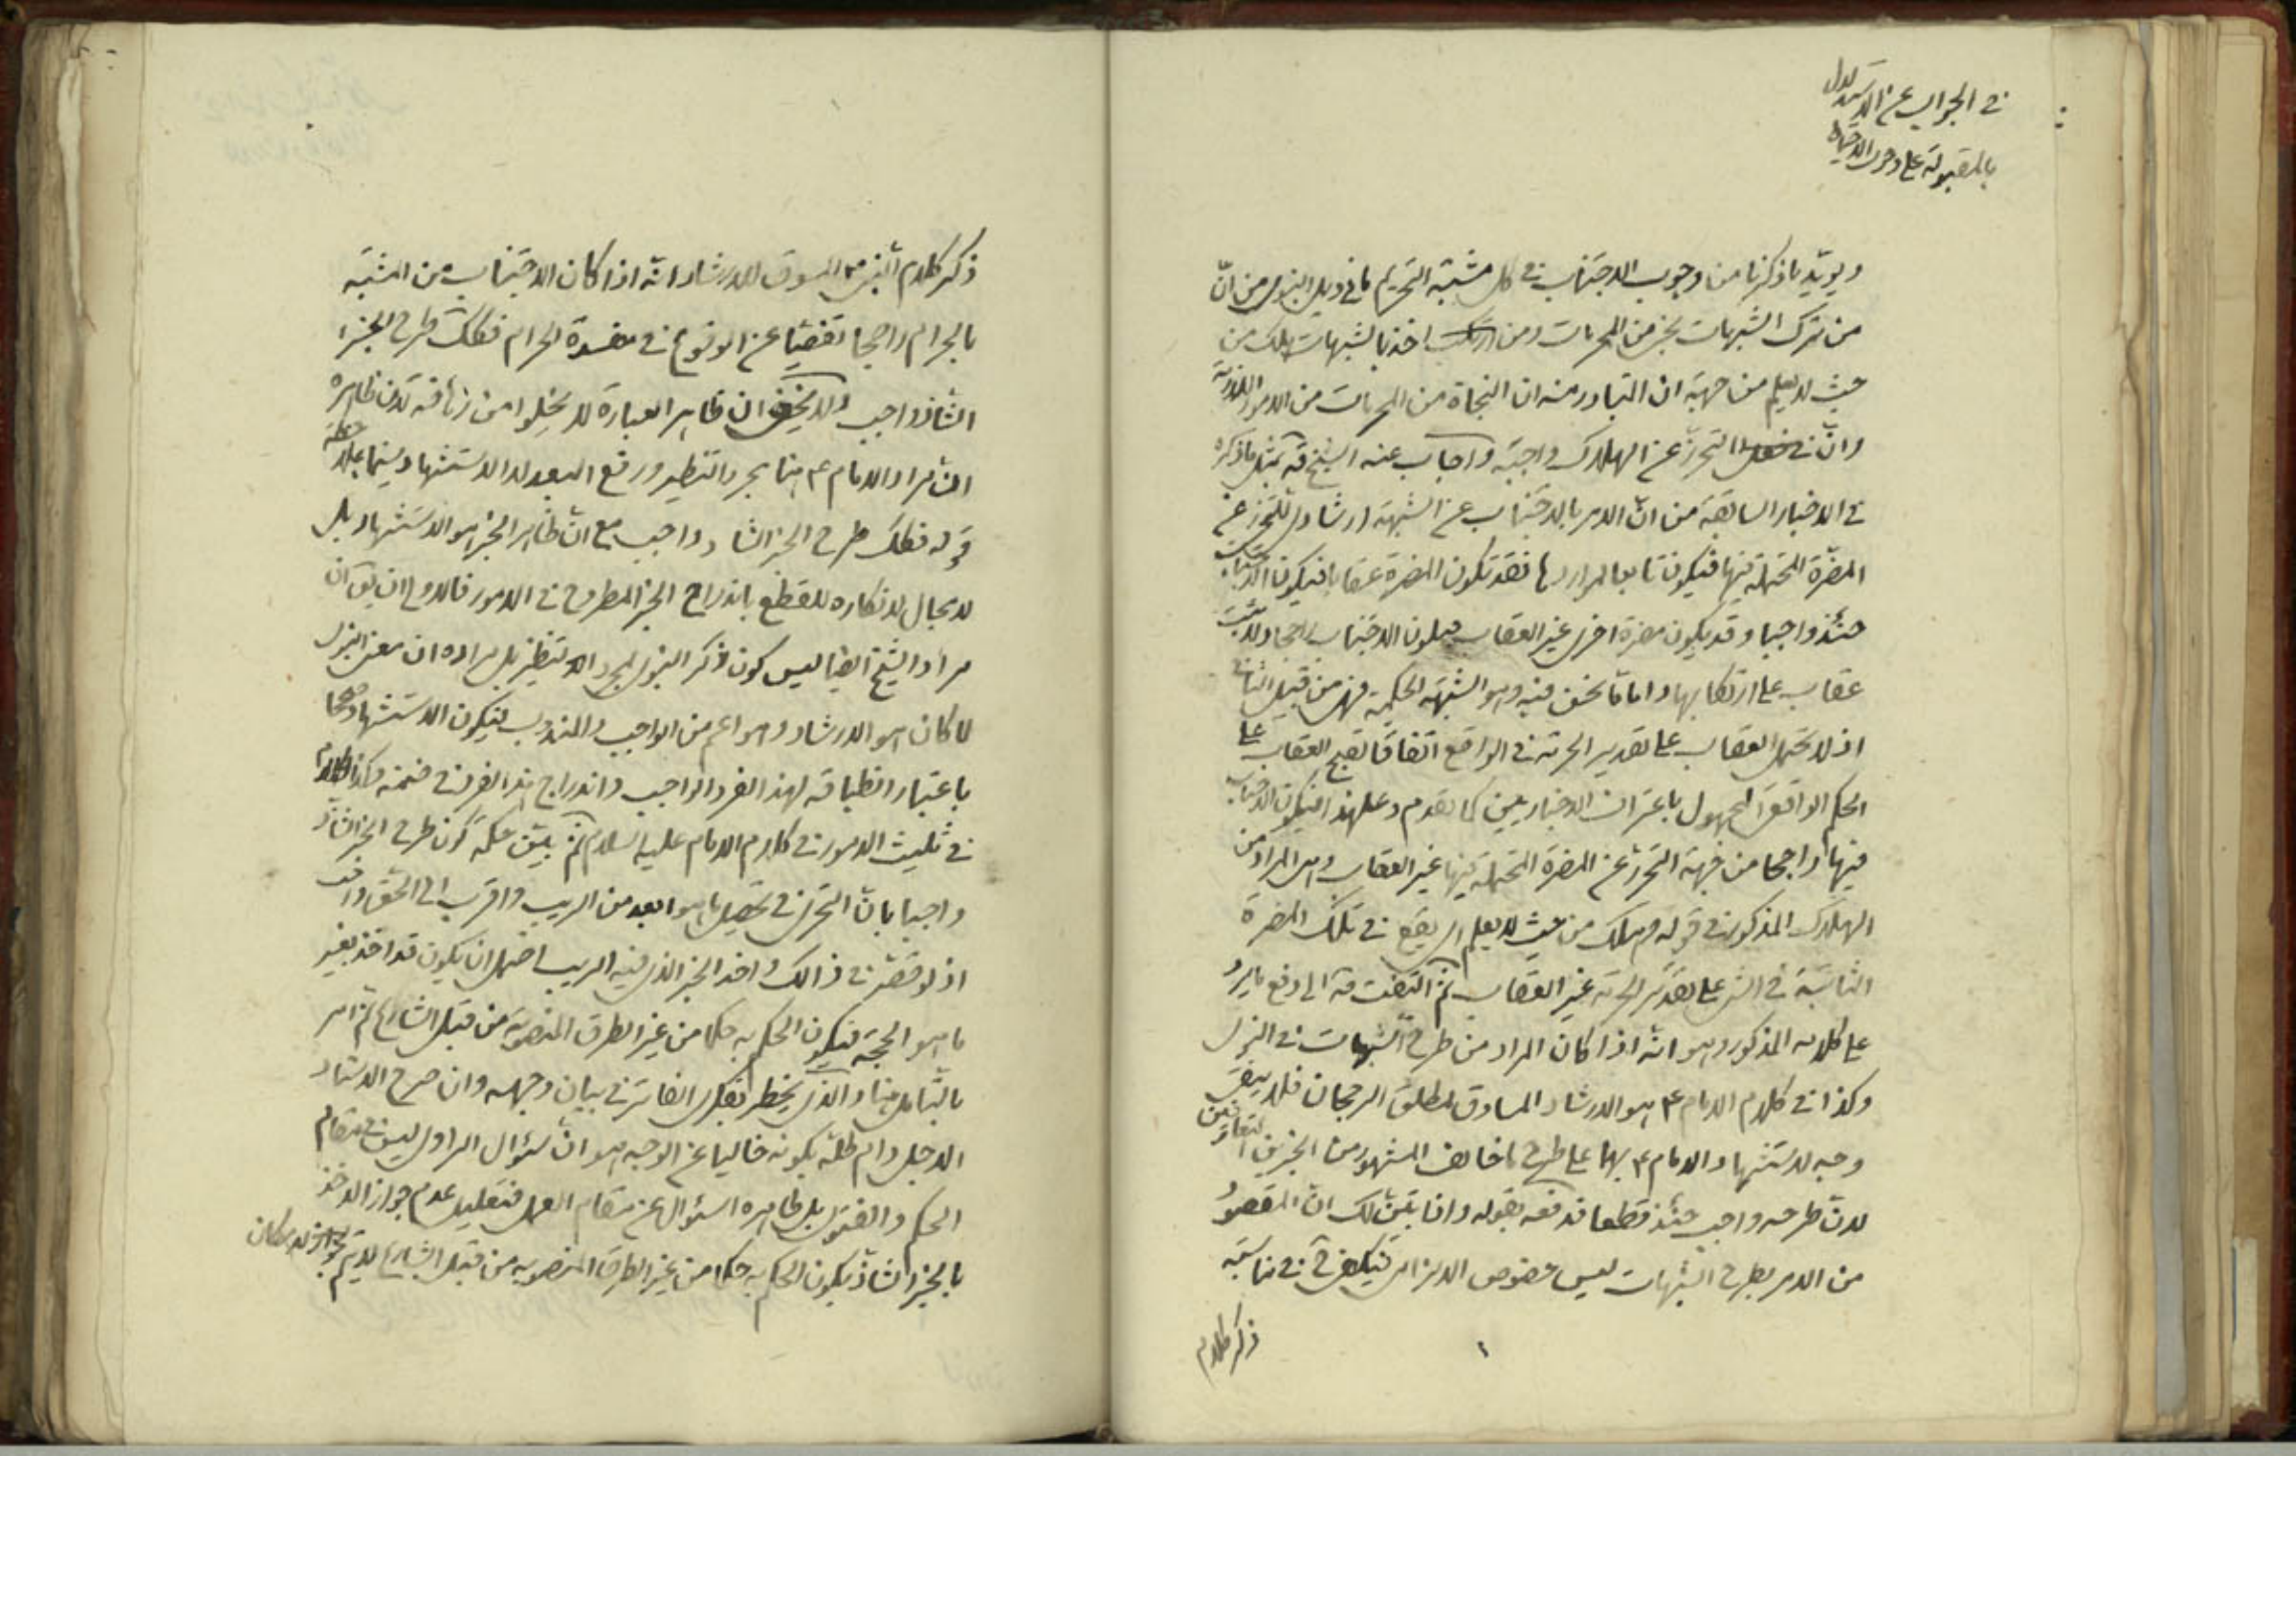 في الجواب عن الاستدلال
بالمقبولة على وجوب الاحتياط
ويؤيد ما ذكرنا من وجوب الاجتناب في كل مشتبه التحريم ما في ذيل النبوي من انّ
من ترك الشبهات نجى من المحرمات ومن اخذ بالشبهات هلك من
حيث لا يعلم من جهة ان المتبادر منه ان النجاة من المحرمات من الامور اللازمة
وانّ التحرز عن الهلاك واجبة واجاب عنه الشيخ قه بمثل ما ذكره
في الاخبار السابقة من انّ الامر بالاجتناب عن الشبهة ارشادي للتحرز عن
المضرّة المحتملة فيها فيكون تابعا لمواردها فقد تكون المضرة عقابا فيكون الاجتناب
حينئذ واجبا وقد يكون مضرة اخرى غير العقاب فيكون الاجتناب راجحا ولا يثبت
عقاب على ارتكابها واما ما نحن فيه وهو الشبهة الحكمية فهي من قبيل الثاني
اذ لا يحتمل العقاب على تقدير الحرمة في الواقع اتفاقا لقبح العقاب على
الحكم الواقعي المجهول باعتراف الاخباريين كما تقدم وعلى هذا فيكون الاجتناب
فيها راجحا من جهة التحرز عن المضرة المحتملة فيها غير العقاب وهي المراد من
الهلاك المذكور في قوله وهلك من حيث لا يعلم اي يقع في تلك المضرة
الثابتة في الشئ على تقدير الحرمة غير العقاب ثم التفت قه الى دفع ما يرد
على كلامه المذكور وهو انّه اذا كان المراد من طرح الشبهات في النبوي
وكذا في كلام الامام ع هو الارشاد المساوق لمطلق الرجحان فلا يبقى
وجه لاستشهاد الامام ع بهما على طرح ما خالف المشهور من الخبرين المتعارضين
لانّ طرحه واجب حينئذ قطعا فدفعه بقوله واذا تبيّن لك انّ المقصود
من الامر بطرح الشبهات ليس خصوص الالزام فيكفي ح في مناسبة
ذكر كلام
ذكر كلام النبي ص المسوق للارشاد انّه اذا كان الاجتناب من المشتبه
بالحرام راجحا تفصّيا عن الوقوع في مفسدة الحرام فكذلك طرح الخبر
الشاذ واجب ولا يخفى ان ظاهر العبارة لا يخلوا من زنافة لانّ ظاهره
انّ مراد الامام ع هنا مجرد التنظير ورفع البعد لا الاستشهاد سيّما بملاحظة
قوله فكذلك طرح الخبر الشاذ واجب مع انّ ظاهر الخبر هو الاستشهاد بل
لا مجال لانكاره للقطع باندراج الخبر المطروح في الامور فالاولى ان يق انّ
مراد الشيخ ايضا ليس كون ذكر النبوي لمجرد التنظير بل مراده ان معنى النبوي
لما كان هو الارشاد وهو اعم من الواجب والمندوب فيكون الاستشهاد صحيحا
باعتبار انطباقه لهذا الفرد الواجب واندراج هذا الفرد في ضمنه وكذا الكلام
في تثليث الامور في كلام الامام عليه السلام ثم بيّن علّة كون طرح الخبر الشاذّ
واجبا بانّ التحرّي في تحصيل ما هو ابعد من الريب واقرب الى الحق واجب
اذ لو قصّر في ذالك واخذ الخبر الذي فيه الريب احتمل ان يكون قد اخذ بغير
ما هو الحجة فيكون الحكم به حكما من غير الطرق المنصوبة من قبل الشارع ثم امر
بالتّأمل هنا والذي يخطر بفكري الفاتر في بيان وجهه وان صرح الاستاد
الاجل دام ظلّه بكونه خاليا عن الوجه هو انّ سئوال الراوي ليس في مقام
الحكم والفتوى بل ظاهره السئوال عن مقام العمل فتعليل عدم جواز الاخذ
بالخبر الشاذ بكون الحكم به حكما من غير الطرق المنصوبة من قبل الشارع لا يتم